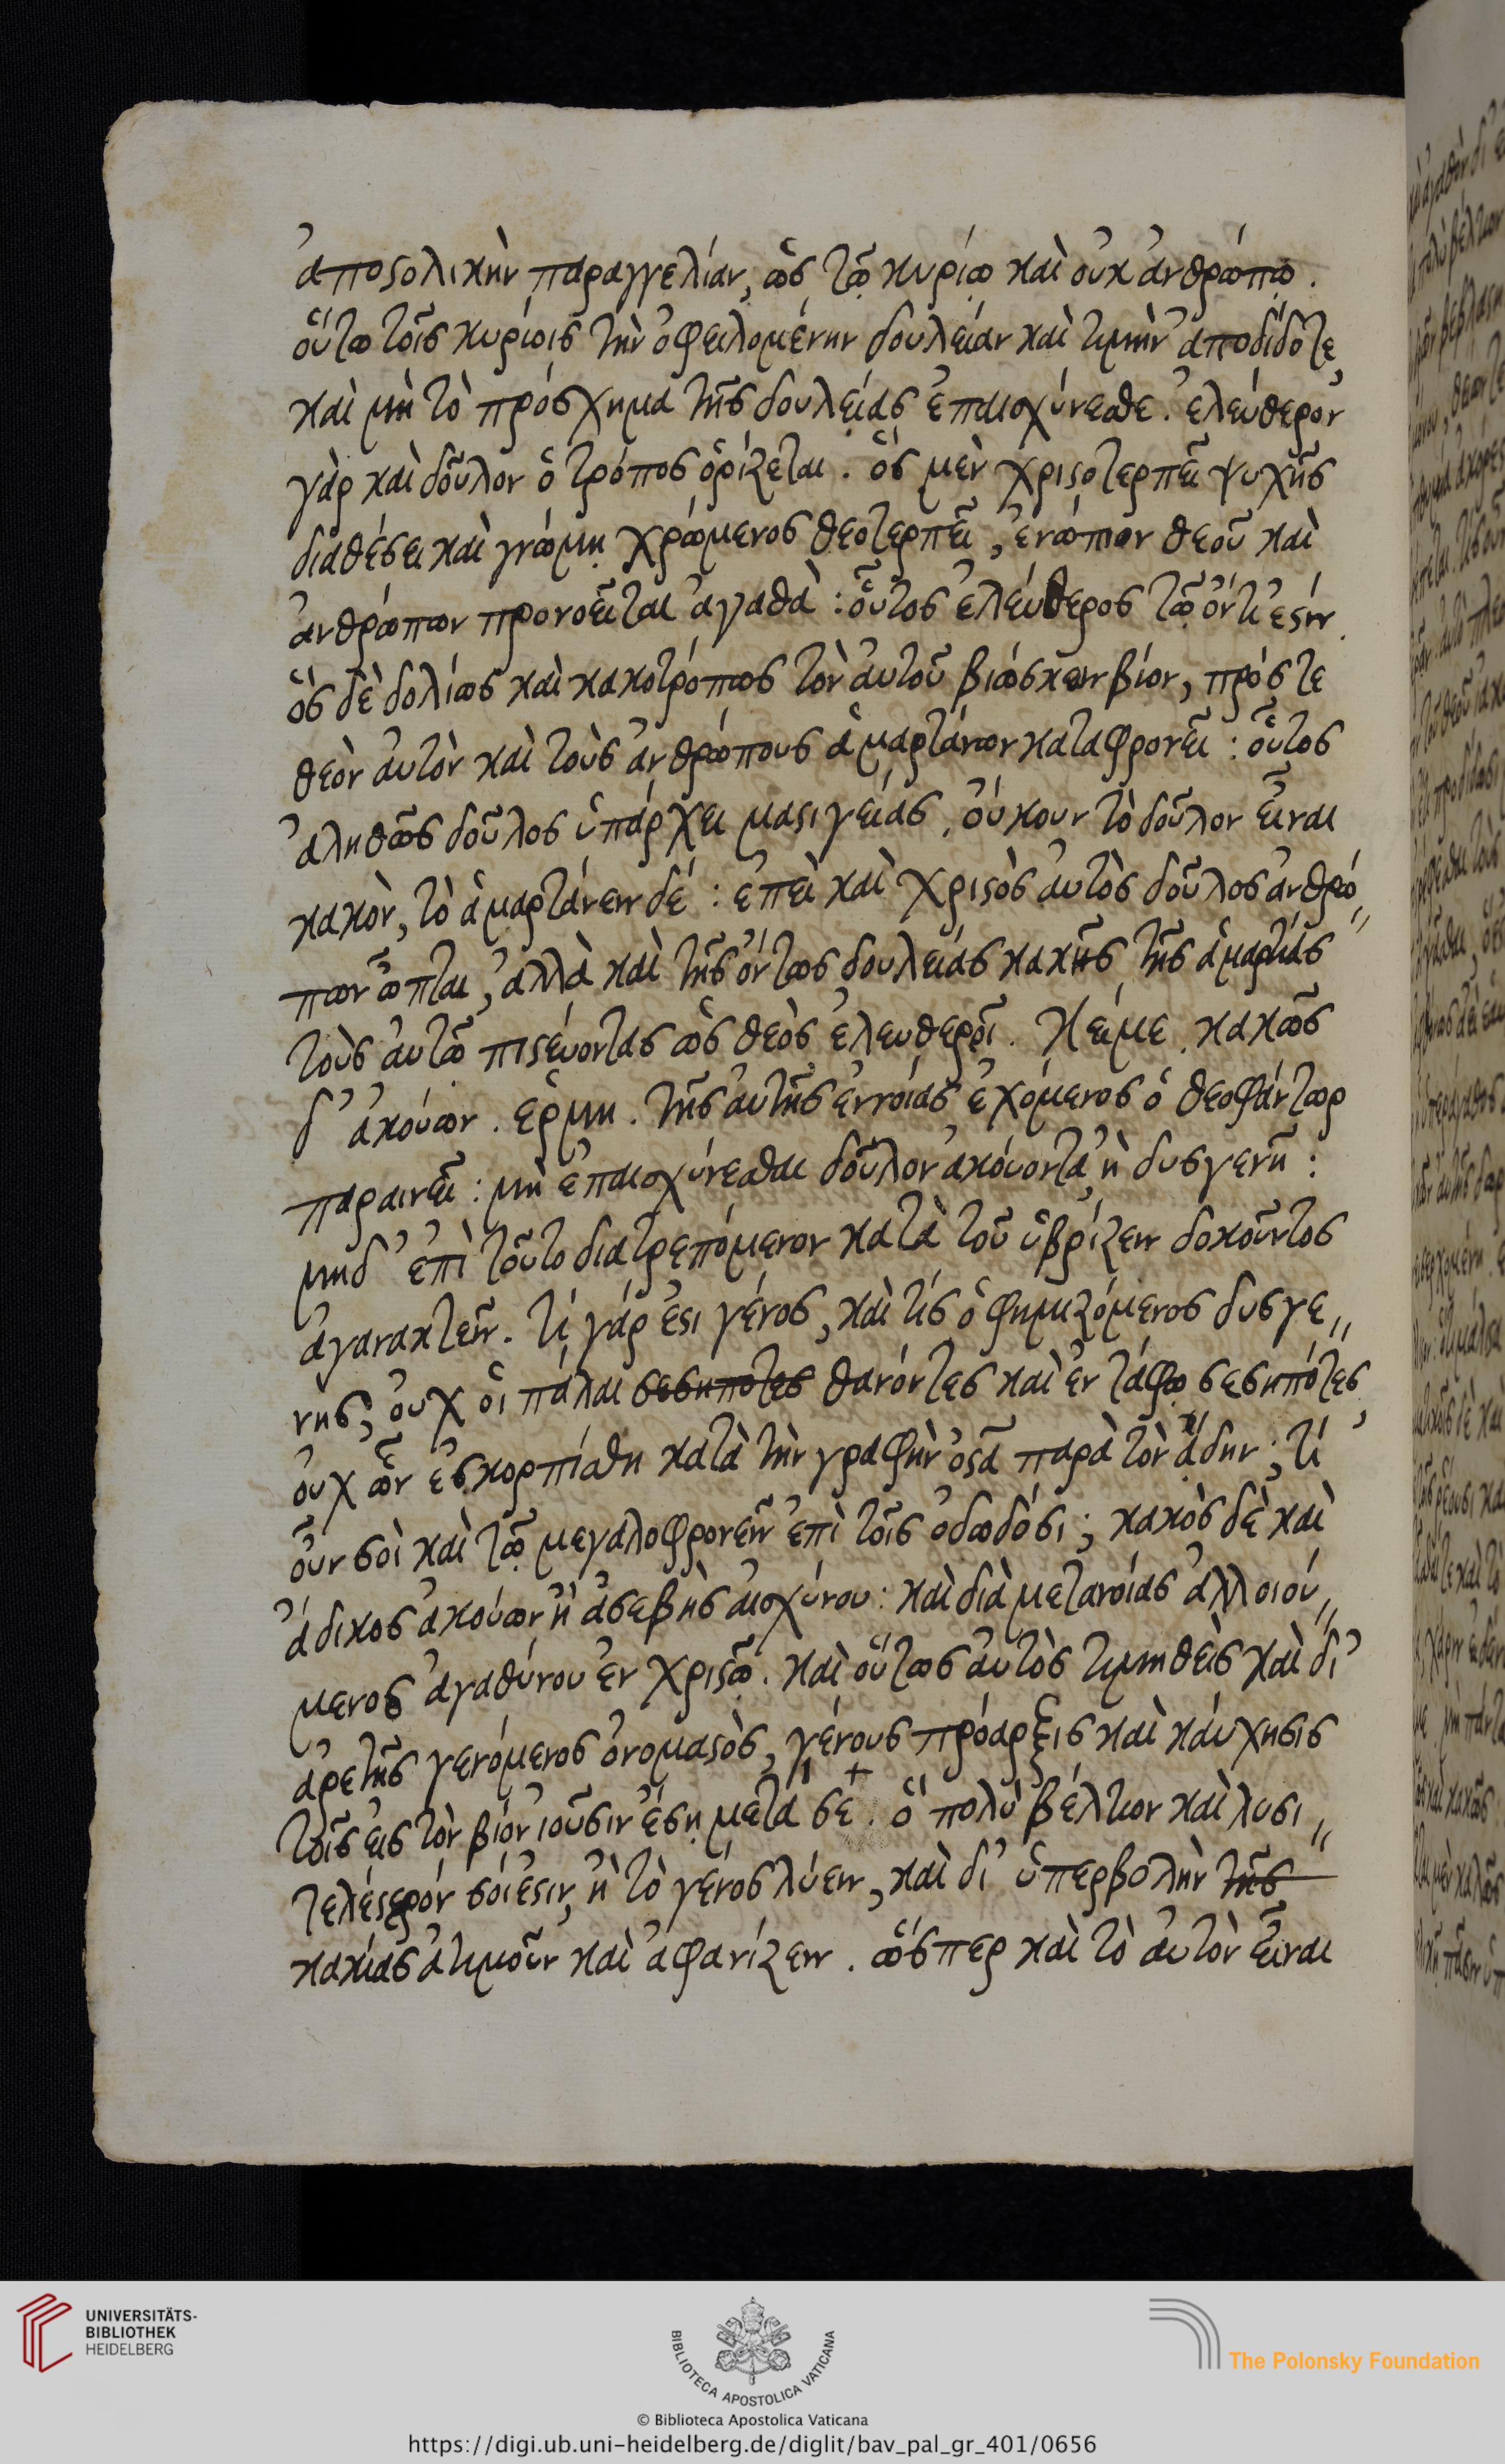 ἀποστολικὴν παραγγελίαν, ὡς τῷ κυρίῳ καὶ οὐκ ἀνθρώπῳ.
οὕτω τοῖς κυρίοις τὴν ὀφειλομένην δουλείαν καὶ τιμὴν ἀποδίδοτε,
καὶ μὴ τὸ πρόσχημα τῆς δουλείας ἐπαισχύνεσθε. ἐλεύθερον
γὰρ καὶ δοῦλον ὁ τρόπος ὁρίζεται. ὃς μὲν χριστοτερπεῖ ψυχῆς
διαθέσει καὶ γνώμῃ χρώμενος θεοτερπεῖ, ἐνώπιον θεοῦ καὶ
ἀνθρώπων προνοεῖται ἀγαθὰ: οὗτος ἐλεύθερος τῷ ὄντι ἐστίν.
ὃς δὲ δολίως καὶ κακοτρόπως τὸν αὑτοῦ βιώσκειν βίον, πρός τε
θεὸν αὐτὸν καὶ τοὺς ἀνθρώπους ἁμαρτάνων καταφρονεῖ: οὗτος
ἀληθῶς δοῦλος ὑπάρχει μαστιγείας. οὔκουν τὸ δοῦλον εἶναι
κακὸν, τὸ ἁμαρτάνειν δέ: ἐπεὶ καὶ χριστὸς αὐτὸς δοῦλος ἀνθρώ„
πων ὦπται, ἀλλὰ καὶ τῆς ὄντως δουλείας κακῆς τῆς ἁμαρτίας
τοὺς αὐτῷ πιστεύοντας ὡς θεὸς ἐλευθεροῖ. Κείμε. κακῶς
δ' ἀκούων. ἑρμη. τῆς αὐτῆς ἐννοίας ἐχόμενος ὁ θεοφάντωρ
παραινεῖ: μὴ ἐπαισχύνεσθαι δοῦλον ἀκούοντα ἢ δυσγενῆ:
μηδ' ἐπὶ τοῦτο διατρεπόμενον κατὰ τοῦ ὑβρίζειν δοκοῦντος
ἀγανακτεῖν. τί γάρ ἐστι γένος, καὶ τίς ὁ φημιζόμενος δυσγε„
νης; οὐχ οἱ πάλαι σεσηπότες θανόντες καὶ ἐν τάφῳ σεσηπότες,
οὐχ ὧν ἐσκορπίσθη κατὰ τὴν γραφὴν ὀστᾶ παρὰ τὸν ᾅδην; τί
οὖν σοὶ καὶ τῷ μεγαλοφρονεῖν ἐπὶ τοῖς ὀδωδόσι; κακὸς δὲ καὶ
ἄδικος ἀκούων ἢ ἀσεβὴς αἰσχύνου: καὶ διὰ μετανοίας ἀλλοιού„
μενος ἀγαθύνου ἐν χριστῷ. καὶ οὕτως αὐτὸς τιμηθεὶς καὶ δι'
ἀρετῆς γενόμενος ὀνομαστὸς, γένους πρόαρξις καὶ καύχησις
τοῖς εἰς τὸν βίον ἰοῦσιν ἔσῃ μετὰ σε. ὃ πολὺ βέλτιον καὶ λυσι„
τελέστερόν σοί ἐστιν, ἢ τὸ γένος λύειν, καὶ δι' ὑπερβολὴν τῆς
κακίας ἀτιμοῦν καὶ ἀφανίζειν. ὥσπερ καὶ τὸ αὐτὸν εἶναι
UNIVERSITÄTS-
BIBLIOTHEK
HEIDELBERG
BIBLIOTECA APOSTOLICA VATICANA
The Polonsky Foundation
© Biblioteca Apostolica Vaticana
https://digi.ub.uni-heidelberg.de/diglit/bav_pal_gr_401/0656